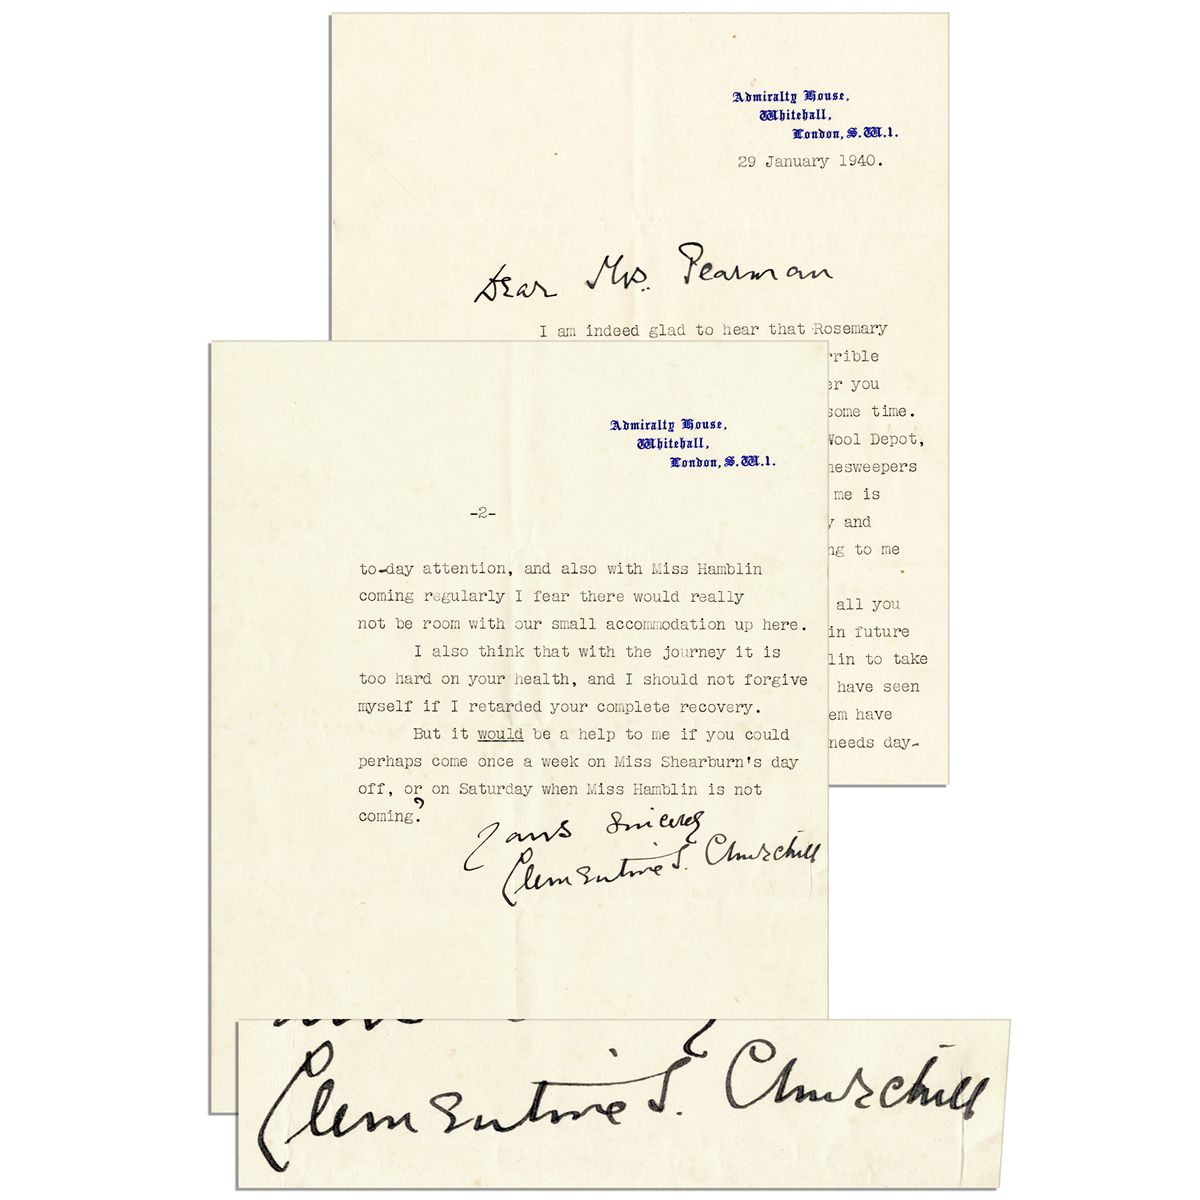 Admiralty House,
Whitehall,
London, S.W.1.
29 January 1940.
Dear Mrs. Pearman
I am indeed glad to hear that Rosemary
rrible
er you
some time.
Wool Depot,
nesweepers
me is
y and
ng to me
all you
in future
lin to take
have seen
em have
needs day-
Admiralty House,
Whitehall,
London, S.W.1.
-2-
to-day attention, and also with Miss Hamblin
coming regularly I fear there would really
not be room with our small accommodation up here.
I also think that with the journey it is
too hard on your health, and I should not forgive
myself if I retarded your complete recovery.
But it would be a help to me if you could
perhaps come once a week on Miss Shearburn's day
off, or on Saturday when Miss Hamblin is not
coming?
Yours sincerely
Clementine S. Churchill
Clementine S. Churchill